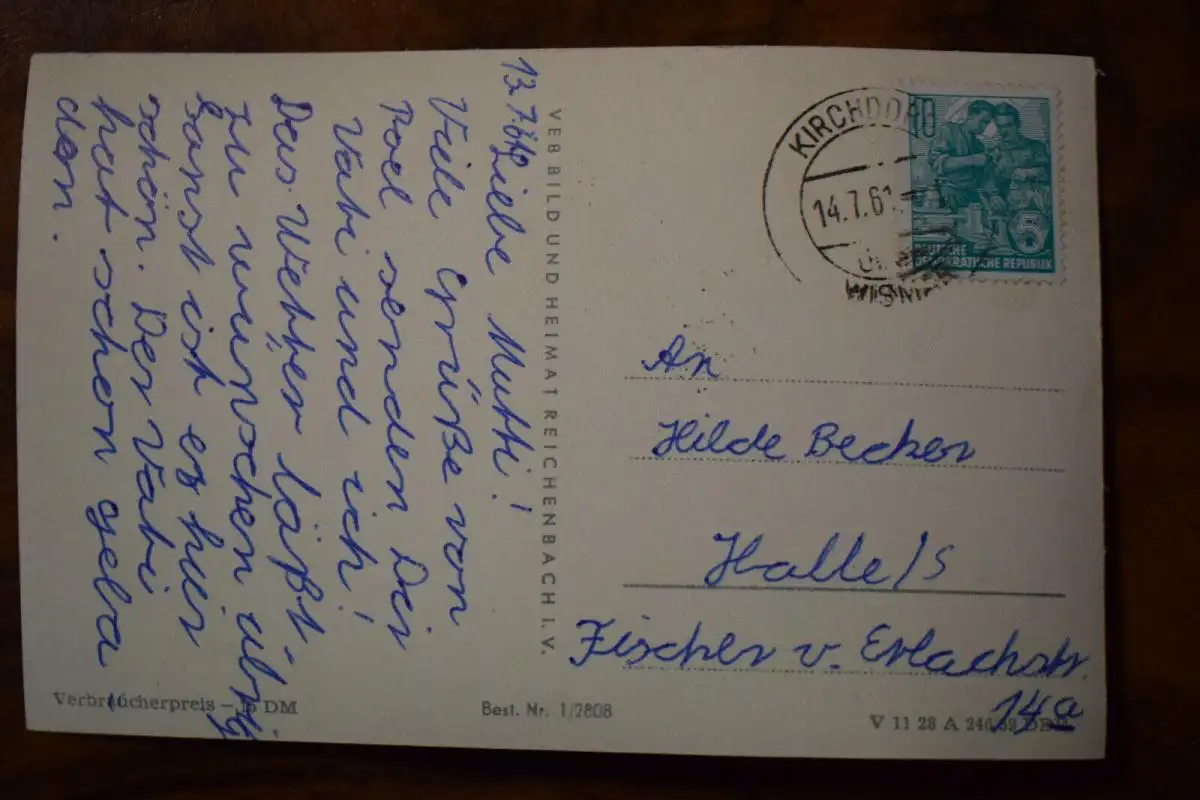 13.7.61
Liebe Mutti!
Viele Grüße von
Poel senden Dir
Vati und ich!
Das Wetter läßt
zu wünschen übrig
Sonst ist es hier
schön. Der Vati
hat schon geba
den.
VEB BILD UND HEIMAT REICHENBACH I. V.
KIRCHDORF
14.7.61
WISMAR
10
5
DEUTSCHE
DEMOKRATISCHE REPUBLIK
An
Hilde Becker
Halle/S
Fischer v. Erlachstr.
14a
Verbraucherpreis – DM
Best. Nr. 1/2808
V 11 28 A